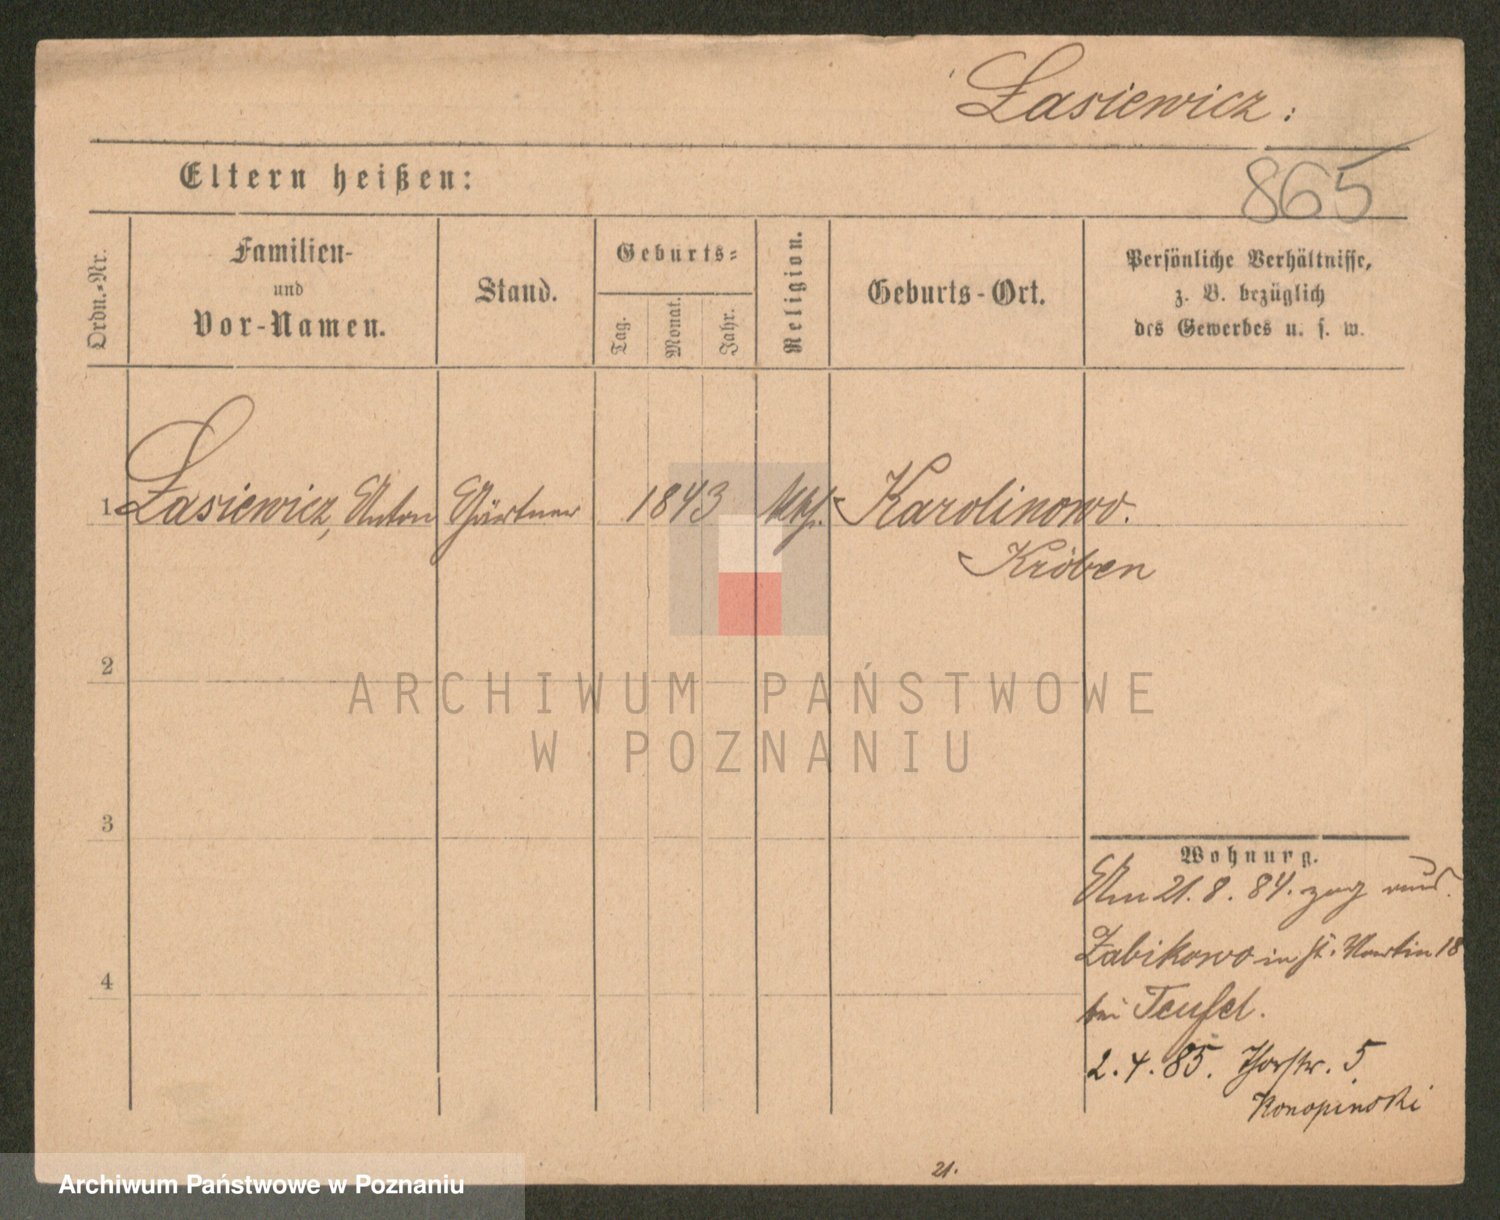 Łasiewicz:
Eltern heißen:
865
Ordn.-Nr.
Familien-
und
Vor-Namen.
Stand.
Geburts-
Tag.
Monat.
Jahr.
Religion.
Geburts-Ort.
Persönliche Verhältnisse,
z. B. bezüglich
des Gewerbes u. s. w.
1 Łasiewicz, Anton Gärtner 1843 kth. Karolinowo.
Kröben
2
3
4
Wohnung.
Am 21. 8. 84. zog aus
Zabikowo in St. Martin 18
bei Teufel.
2. 4. 85. Thorstr. 5
Konopinski
21.
ARCHIWUM PAŃSTWOWE
W POZNANIU
Archiwum Państwowe w Poznaniu